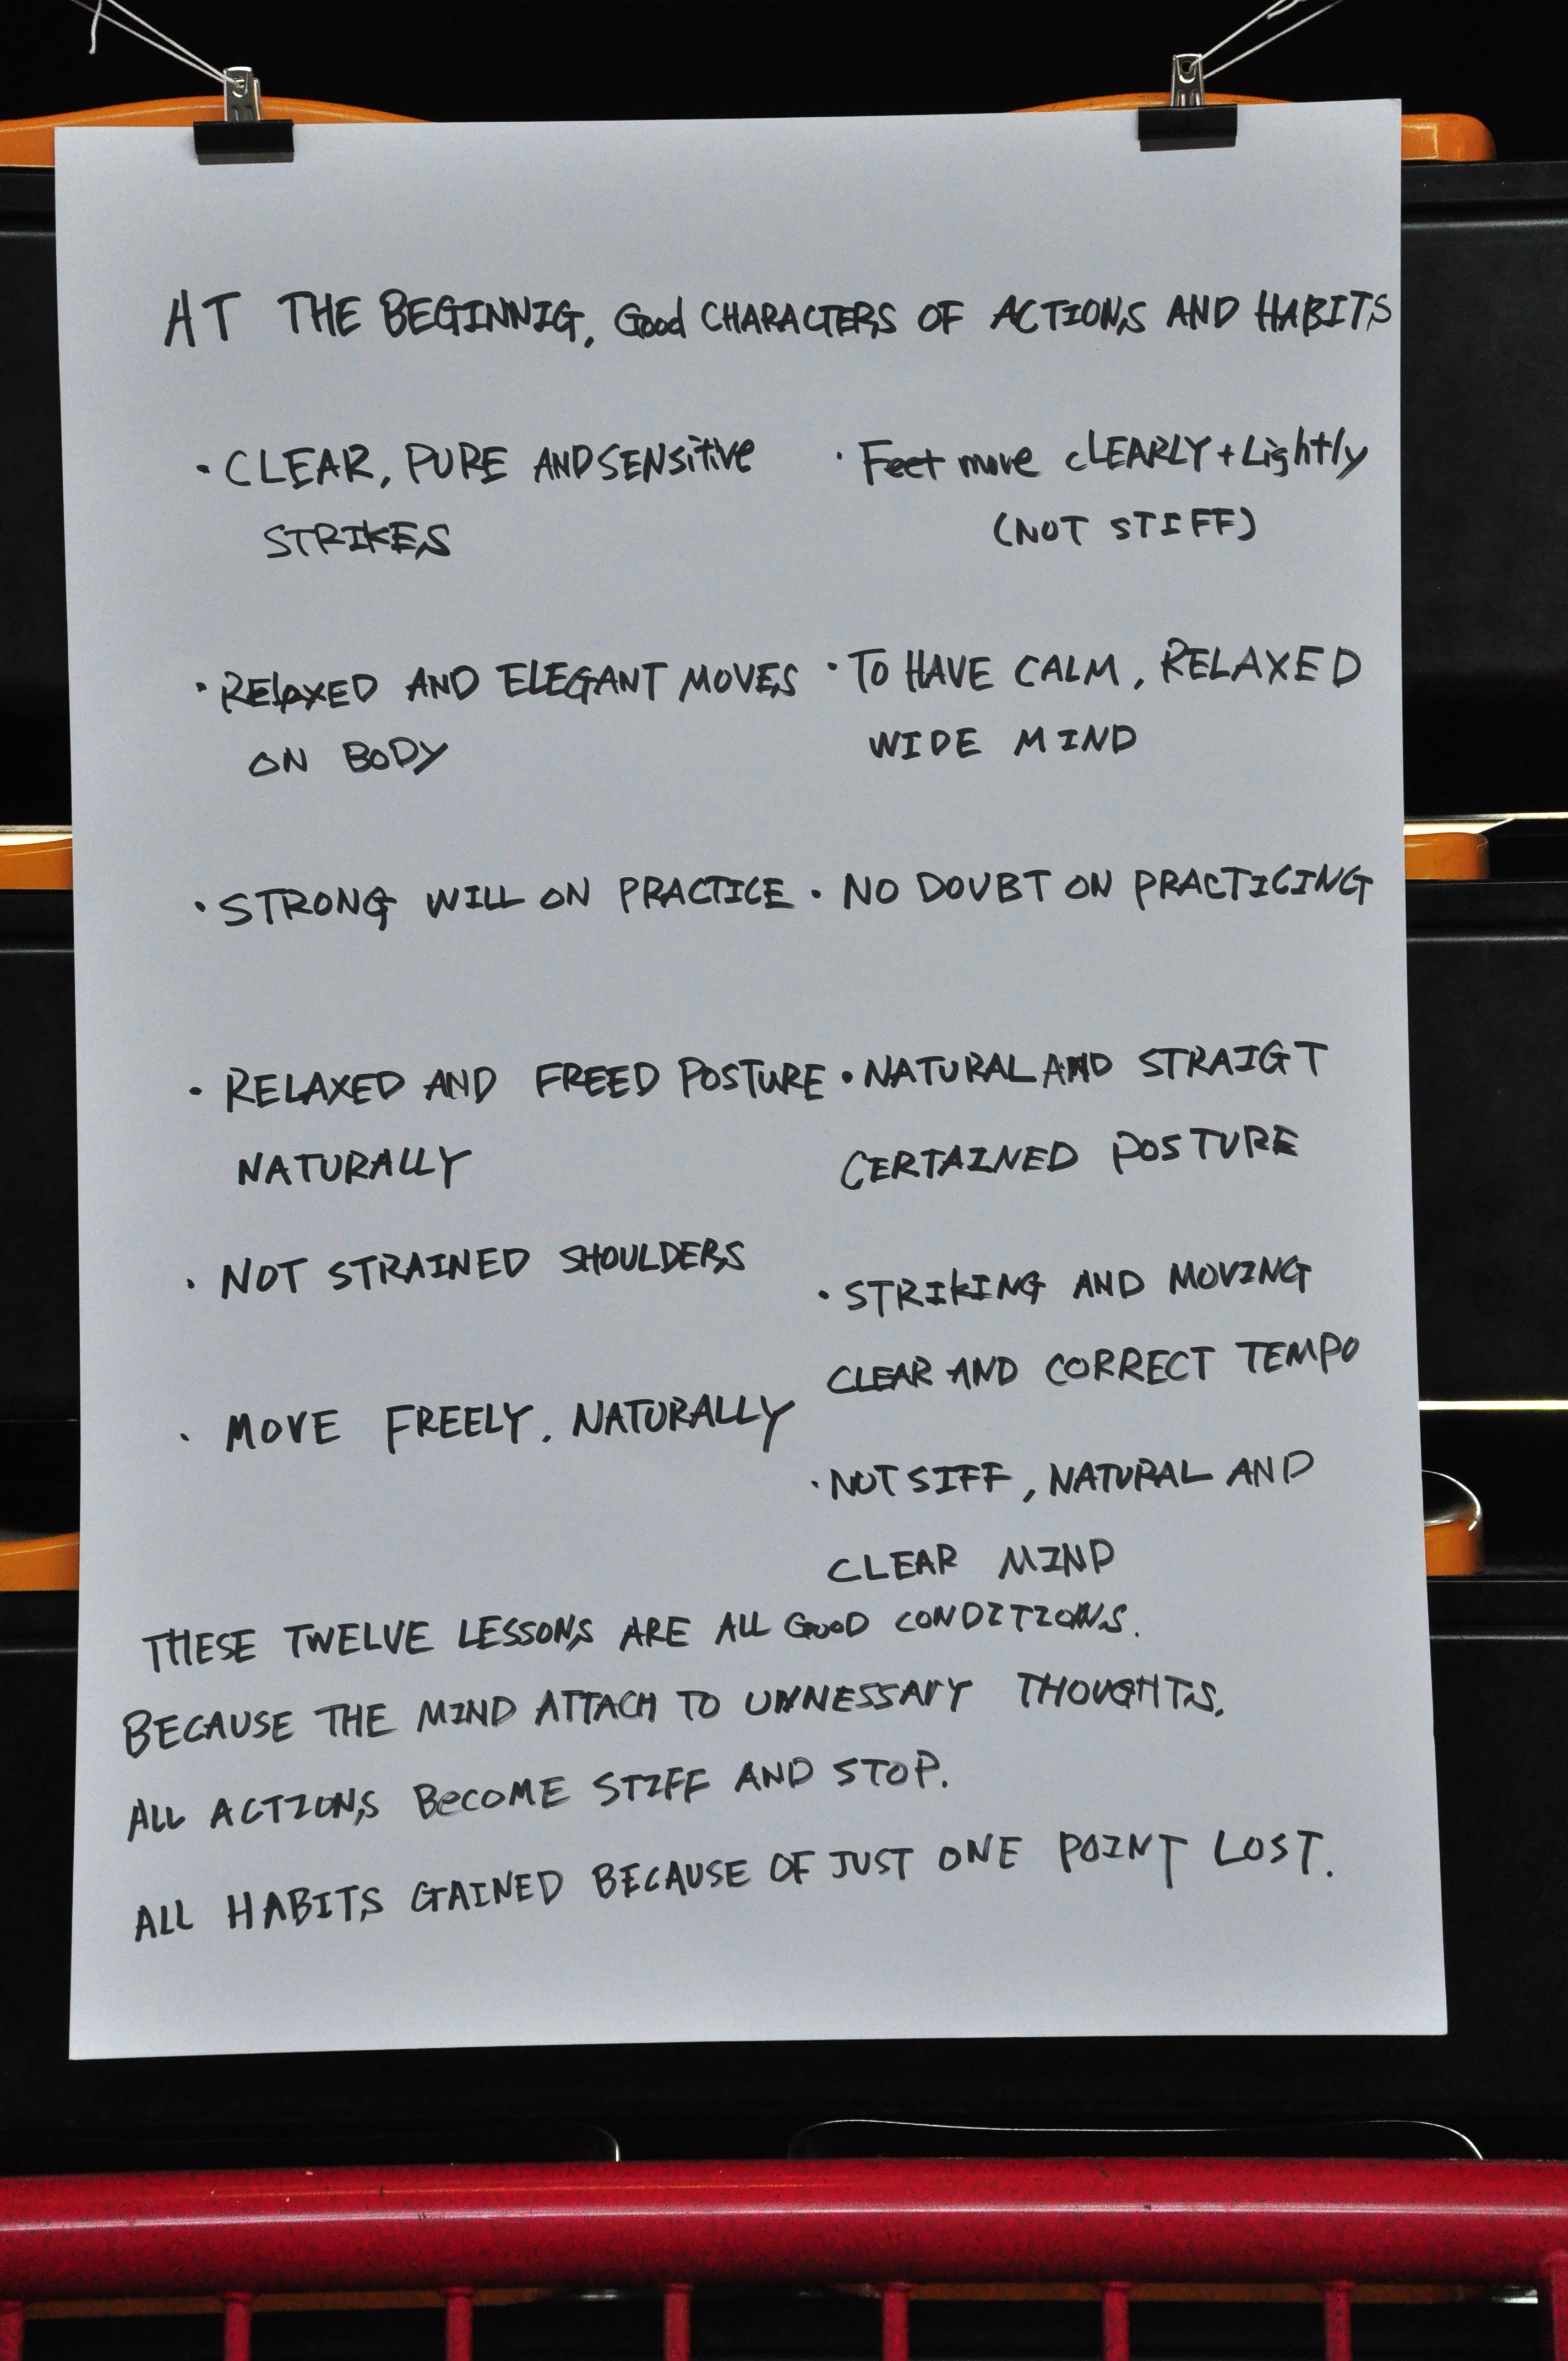 AT THE BEGINNIG, Good CHARACTERS OF ACTIONS AND HABITS
· CLEAR, PURE AND SENSitive
STRIKES
· RELaXED AND ELEGANT MOVES
ON BODY
· STRONG WILL ON PRACTICE
· RELAXED AND FREED POSTURE
NATURALLY
· NOT STRAINED SHOULDERS
· MOVE FREELY. NATURALLY
· Feet move cLEARLY + Lightly
(NOT STIFF)
· TO HAVE CALM, RELAXED
WIDE MIND
· NO DOUBT ON PRACTICING
· NATURAL AND STRAIGT
CERTAINED POSTURE
· STRIKING AND MOVING
CLEAR AND CORRECT TEMPO
· NOT SIFF, NATURAL AND
CLEAR MIND
THESE TWELVE LESSONS ARE ALL GooD CONDITIONS.
BECAUSE THE MIND ATTACH TO UNNESSARY THOUGHTS.
ALL ACTIONS BecOME STIFF AND STOP.
ALL HABITS GAINED BECAUSE OF JUST ONE POINT LOST.